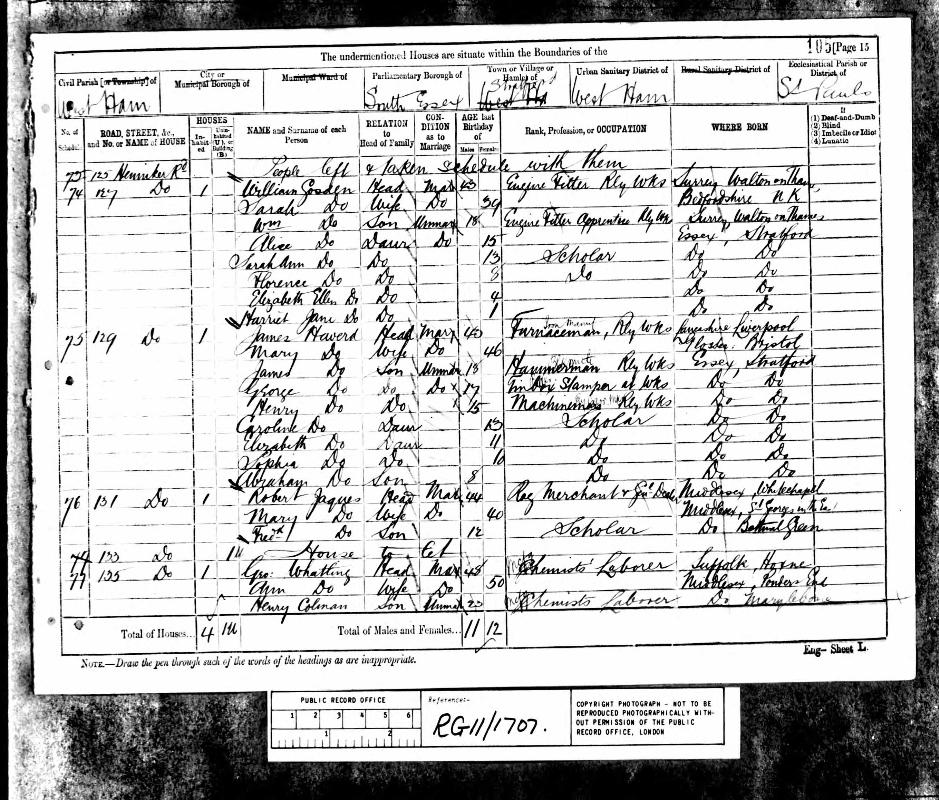 The undermentioned Houses are situate within the Boundaries of the
105 [Page 15
Civil Parish [or Township] of West Ham
City or Municipal Borough of
Municipal Ward of
Parliamentary Borough of South Essex
Town or Village or Hamlet of
Urban Sanitary District of West Ham
Rural Sanitary District of
Ecclesiastical Parish or District of St Pauls
No. of Schedule
ROAD, STREET, &c., and No. or NAME of HOUSE
HOUSES Inhabited Uninhabited (U.), or Building (B.)
NAME and Surname of each Person
RELATION to Head of Family
CONDITION as to Marriage
AGE last Birthday of Males Females
Rank, Profession, or OCCUPATION
WHERE BORN
If (1) Deaf-and-Dumb (2) Blind (3) Imbecile or Idiot (4) Lunatic
73 125 Henniker Rd People left & taken Schedule with them
74 127 Do 1 William Gosden Head Mar 43 Engine Fitter Rly Wks Surrey Walton on Thames
Sarah Do Wife Do 39 Bedfordshire N K
Wm Do Son Unmar 18 Engine Fitter Apprentice Rly Wks Surrey Walton on Thames
Alice Do Daur Do 15 Essex, Stratford
Sarah Ann Do Do 13 Scholar Do Do
Florence Do Do 8 Do Do Do
Elizabeth Ellen Do Do 4 Do Do
Harriet Jane Do Do 1 Do Do
75 129 Do 1 James Haverd Head Mar 43 Furnaceman, Rly Wks Lancashire Liverpool
Mary Do Wife Do 46 Gloster, Bristol
James Do Son Unmar 18 Hammerman Rly Wks Essex Stratford
George Do Do Do 17 Stamper at Wks Do Do
Henry Do Do 15 Machineman Rly Wks Do Do
Caroline Do Daur 13 Scholar Do Do
Elizabeth Do Daur 11 Do Do Do
Sophia Do Do 10 Do Do Do
Abraham Do Son 8 Do Do Do
76 131 Do 1 Robert Jaques Head Mar 44 Rag Merchant & Genl Dealer Middlesex, Whitechapel
Mary Do Wife Do 40 Middlesex, St Georges in the East
Fredk Do Son 12 Scholar Do Bethnal Green
133 Do 1U House to Let
77 135 Do 1 Geo. Whatling Head Mar 48 Chemists' Laborer Suffolk Hoxne
Ann Do Wife Do 50 Middlesex Ponders End
Henry Colman Son Unmar 23 Chemists Laborer Do Marylebone
Total of Houses... 4 1U Total of Males and Females... 11 12
NOTE.—Draw the pen through such of the words of the headings as are inappropriate.
Eng— Sheet L.
PUBLIC RECORD OFFICE
1 2 3 4 5 6
1 2
Reference:-
RG11/1707.
COPYRIGHT PHOTOGRAPH - NOT TO BE REPRODUCED PHOTOGRAPHICALLY WITHOUT PERMISSION OF THE PUBLIC RECORD OFFICE, LONDON